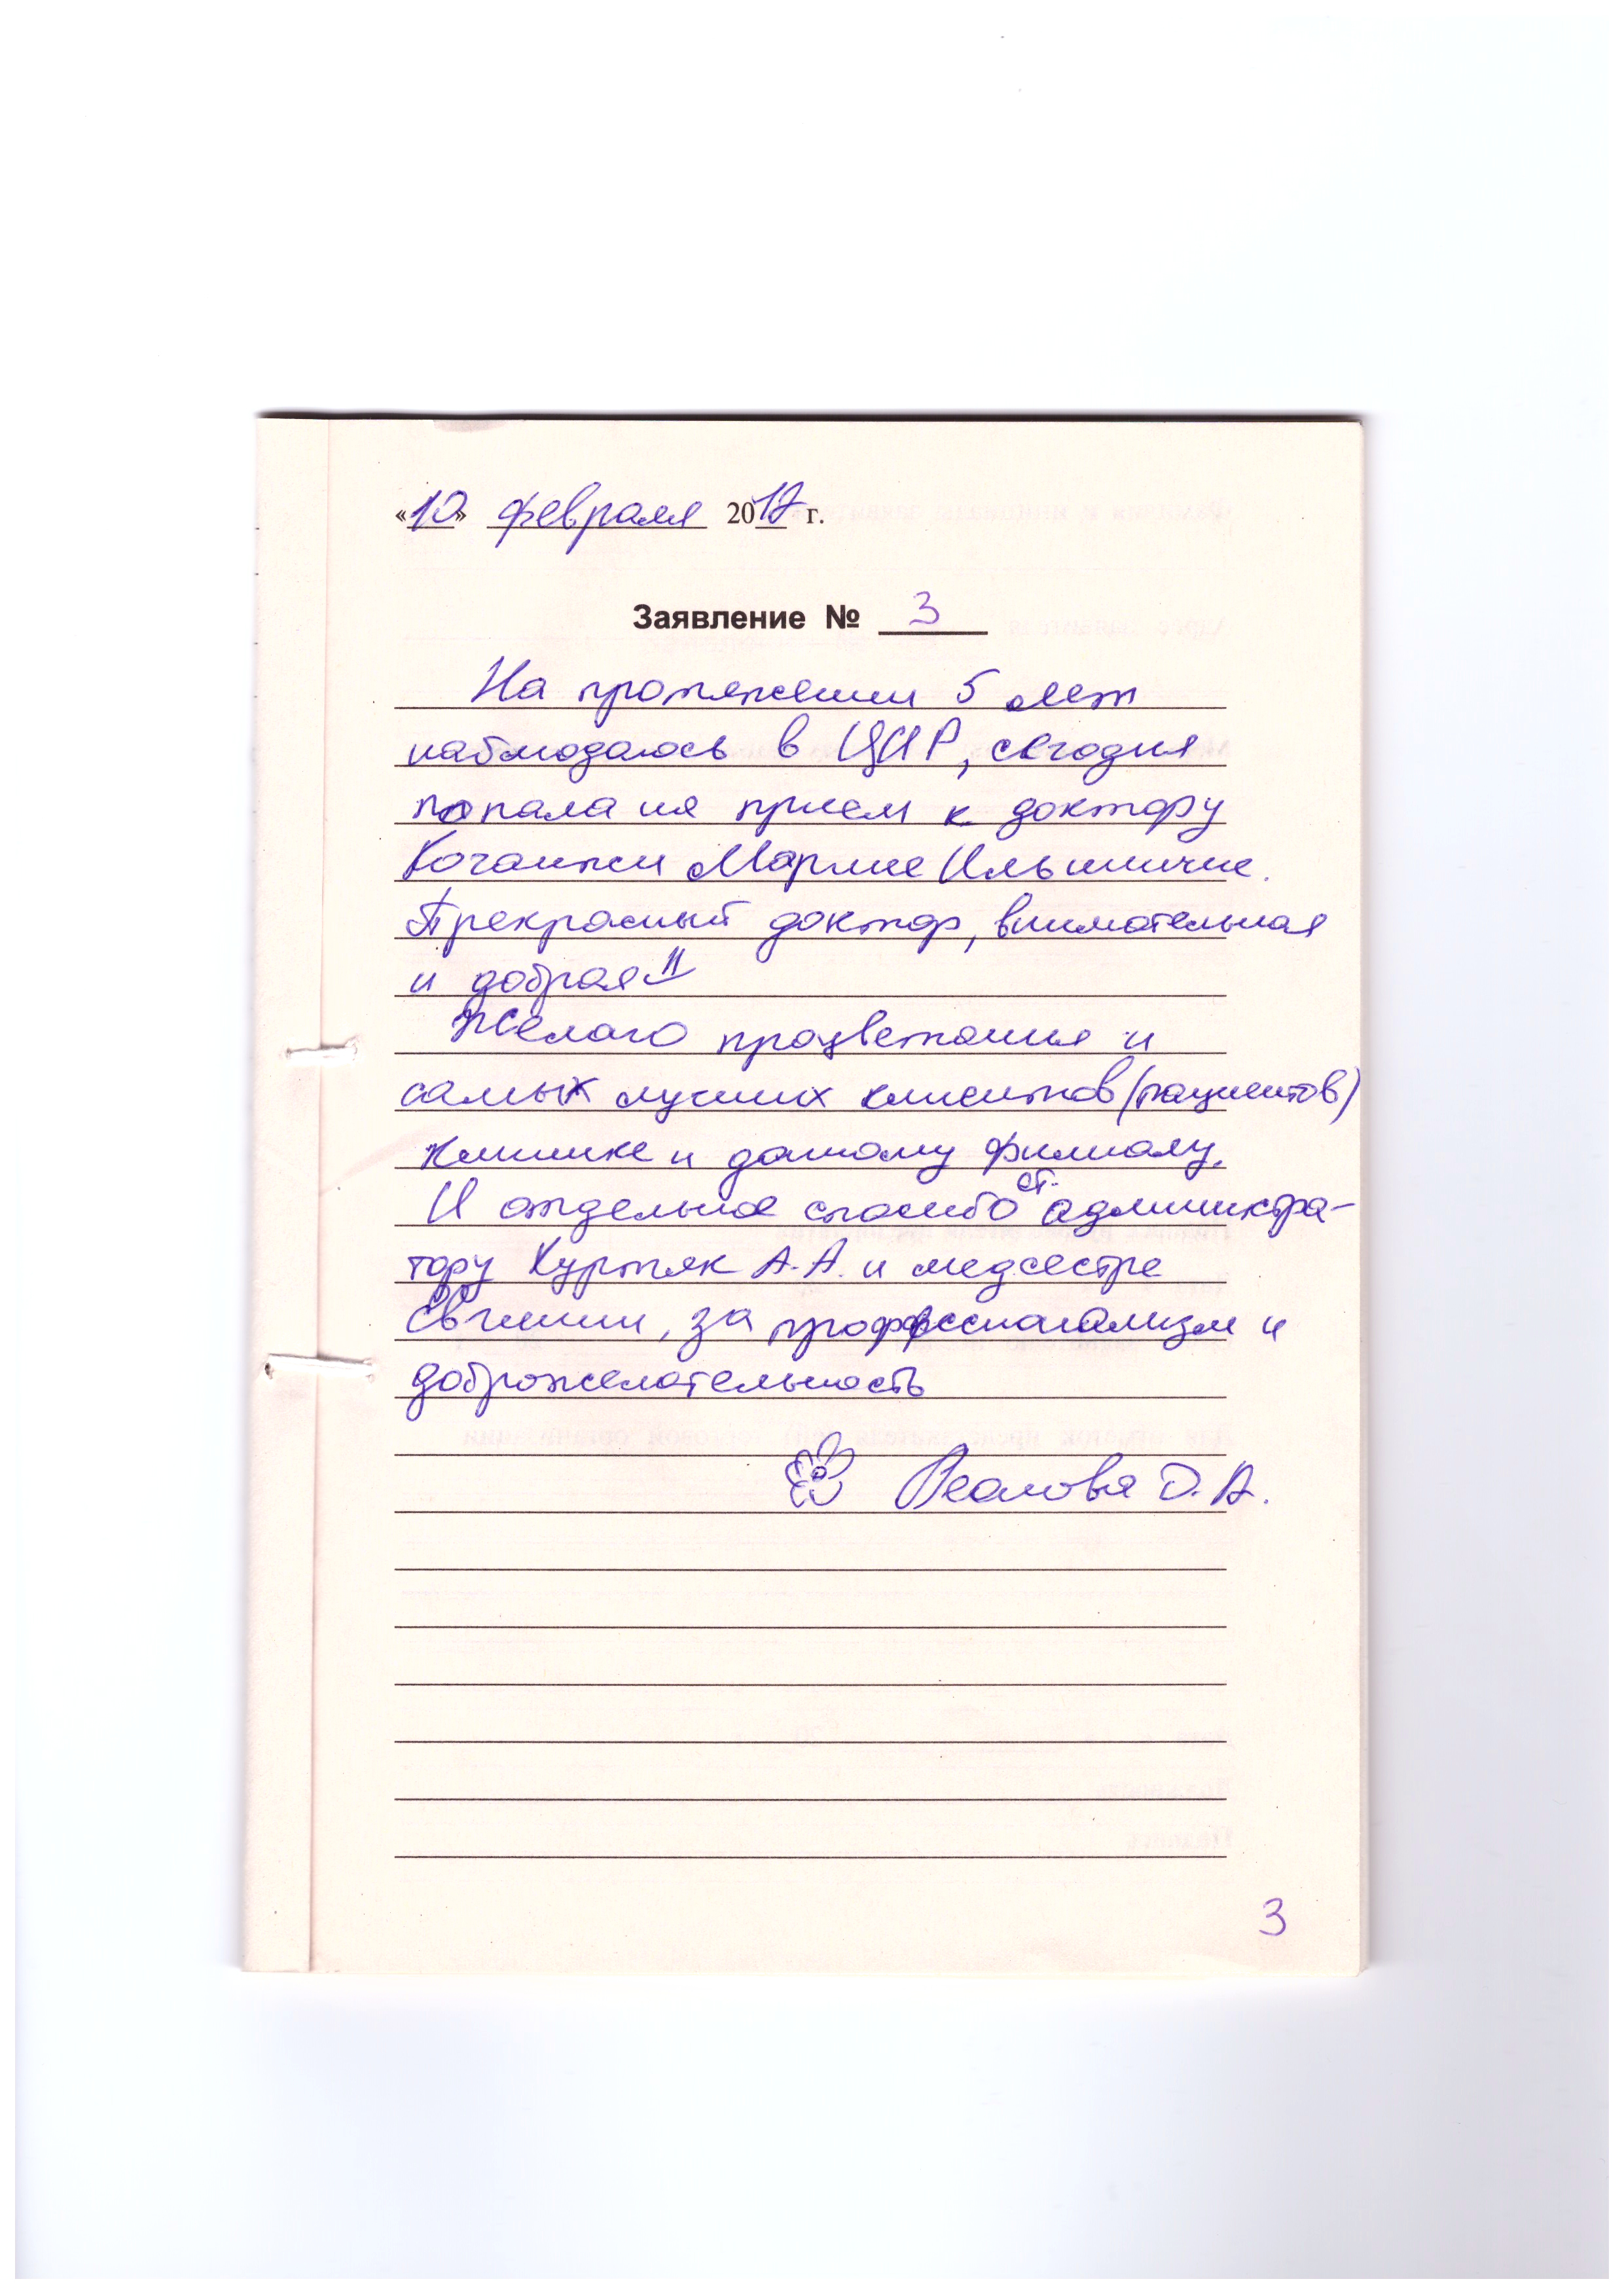 «10» февраля 2017 г.
Заявление № 3
На протяжении 5 лет
наблюдаюсь в ЦИР, сегодня
попала на прием к доктору
Кочанжи Марине Ильиничне.
Прекрасный доктор, внимательная
и добрая!!
Желаю процветания и
самых лучших клиентов (пациентов)
клинике и данному филиалу.
И отдельное спасибо ст. администра-
тору Куртяк А.А. и медсестре
Евгении, за профессионализм и
доброжелательность
О.А.
3